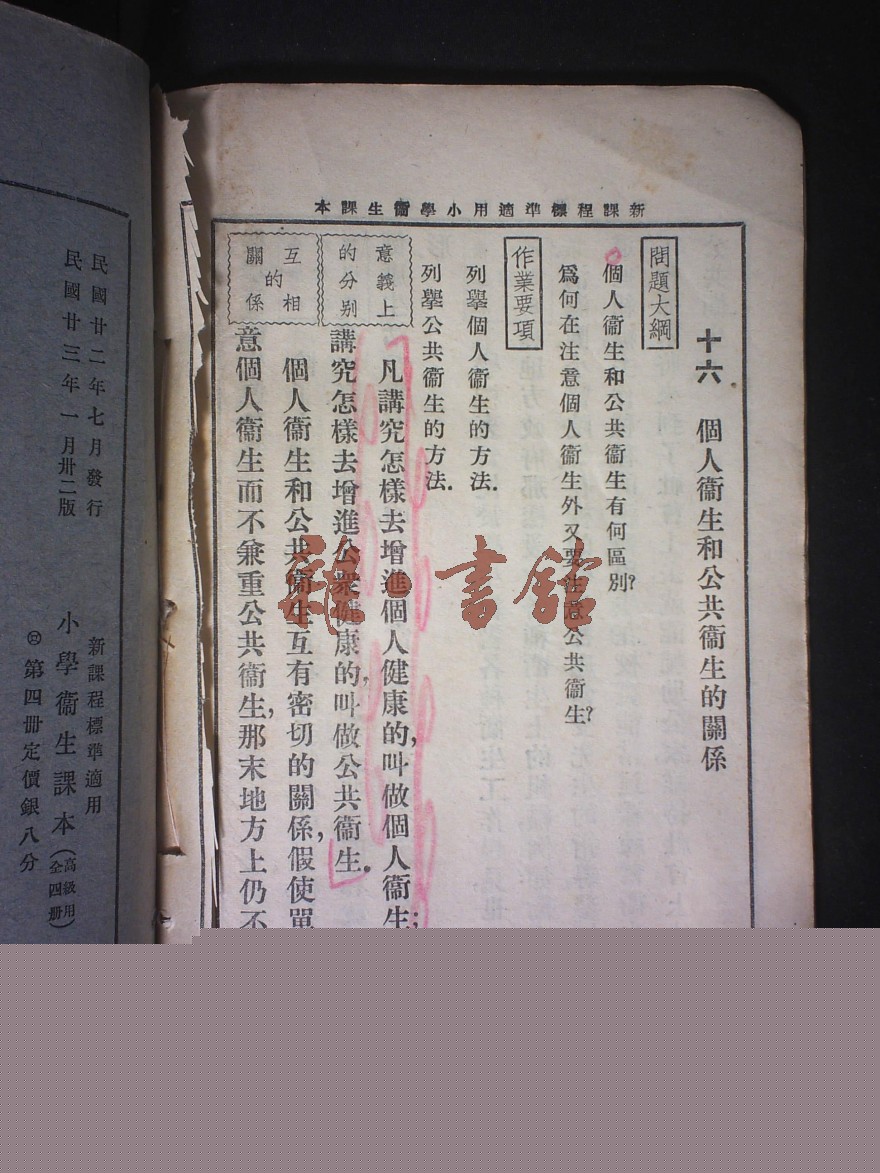 新課程標準適用小學衞生課本
十六 個人衞生和公共衞生的關係
問題大綱
個人衞生和公共衞生有何區別?
爲何在注意個人衞生外又要注意公共衞生?
作業要項
列舉個人衞生的方法.
列舉公共衞生的方法.
意義上的分別
凡講究怎樣去增進個人健康的,叫做個人衞生;
講究怎樣去增進公衆健康的,叫做公共衞生.
互相的關係
個人衞生和公共衞生互有密切的關係,假使單
意個人衞生而不兼重公共衞生,那末地方上仍不
民國廿二年七月發行
民國廿三年一月卅二版
新課程標準適用
小學衞生課本(高級用全四册)
第四册定價銀八分
書館